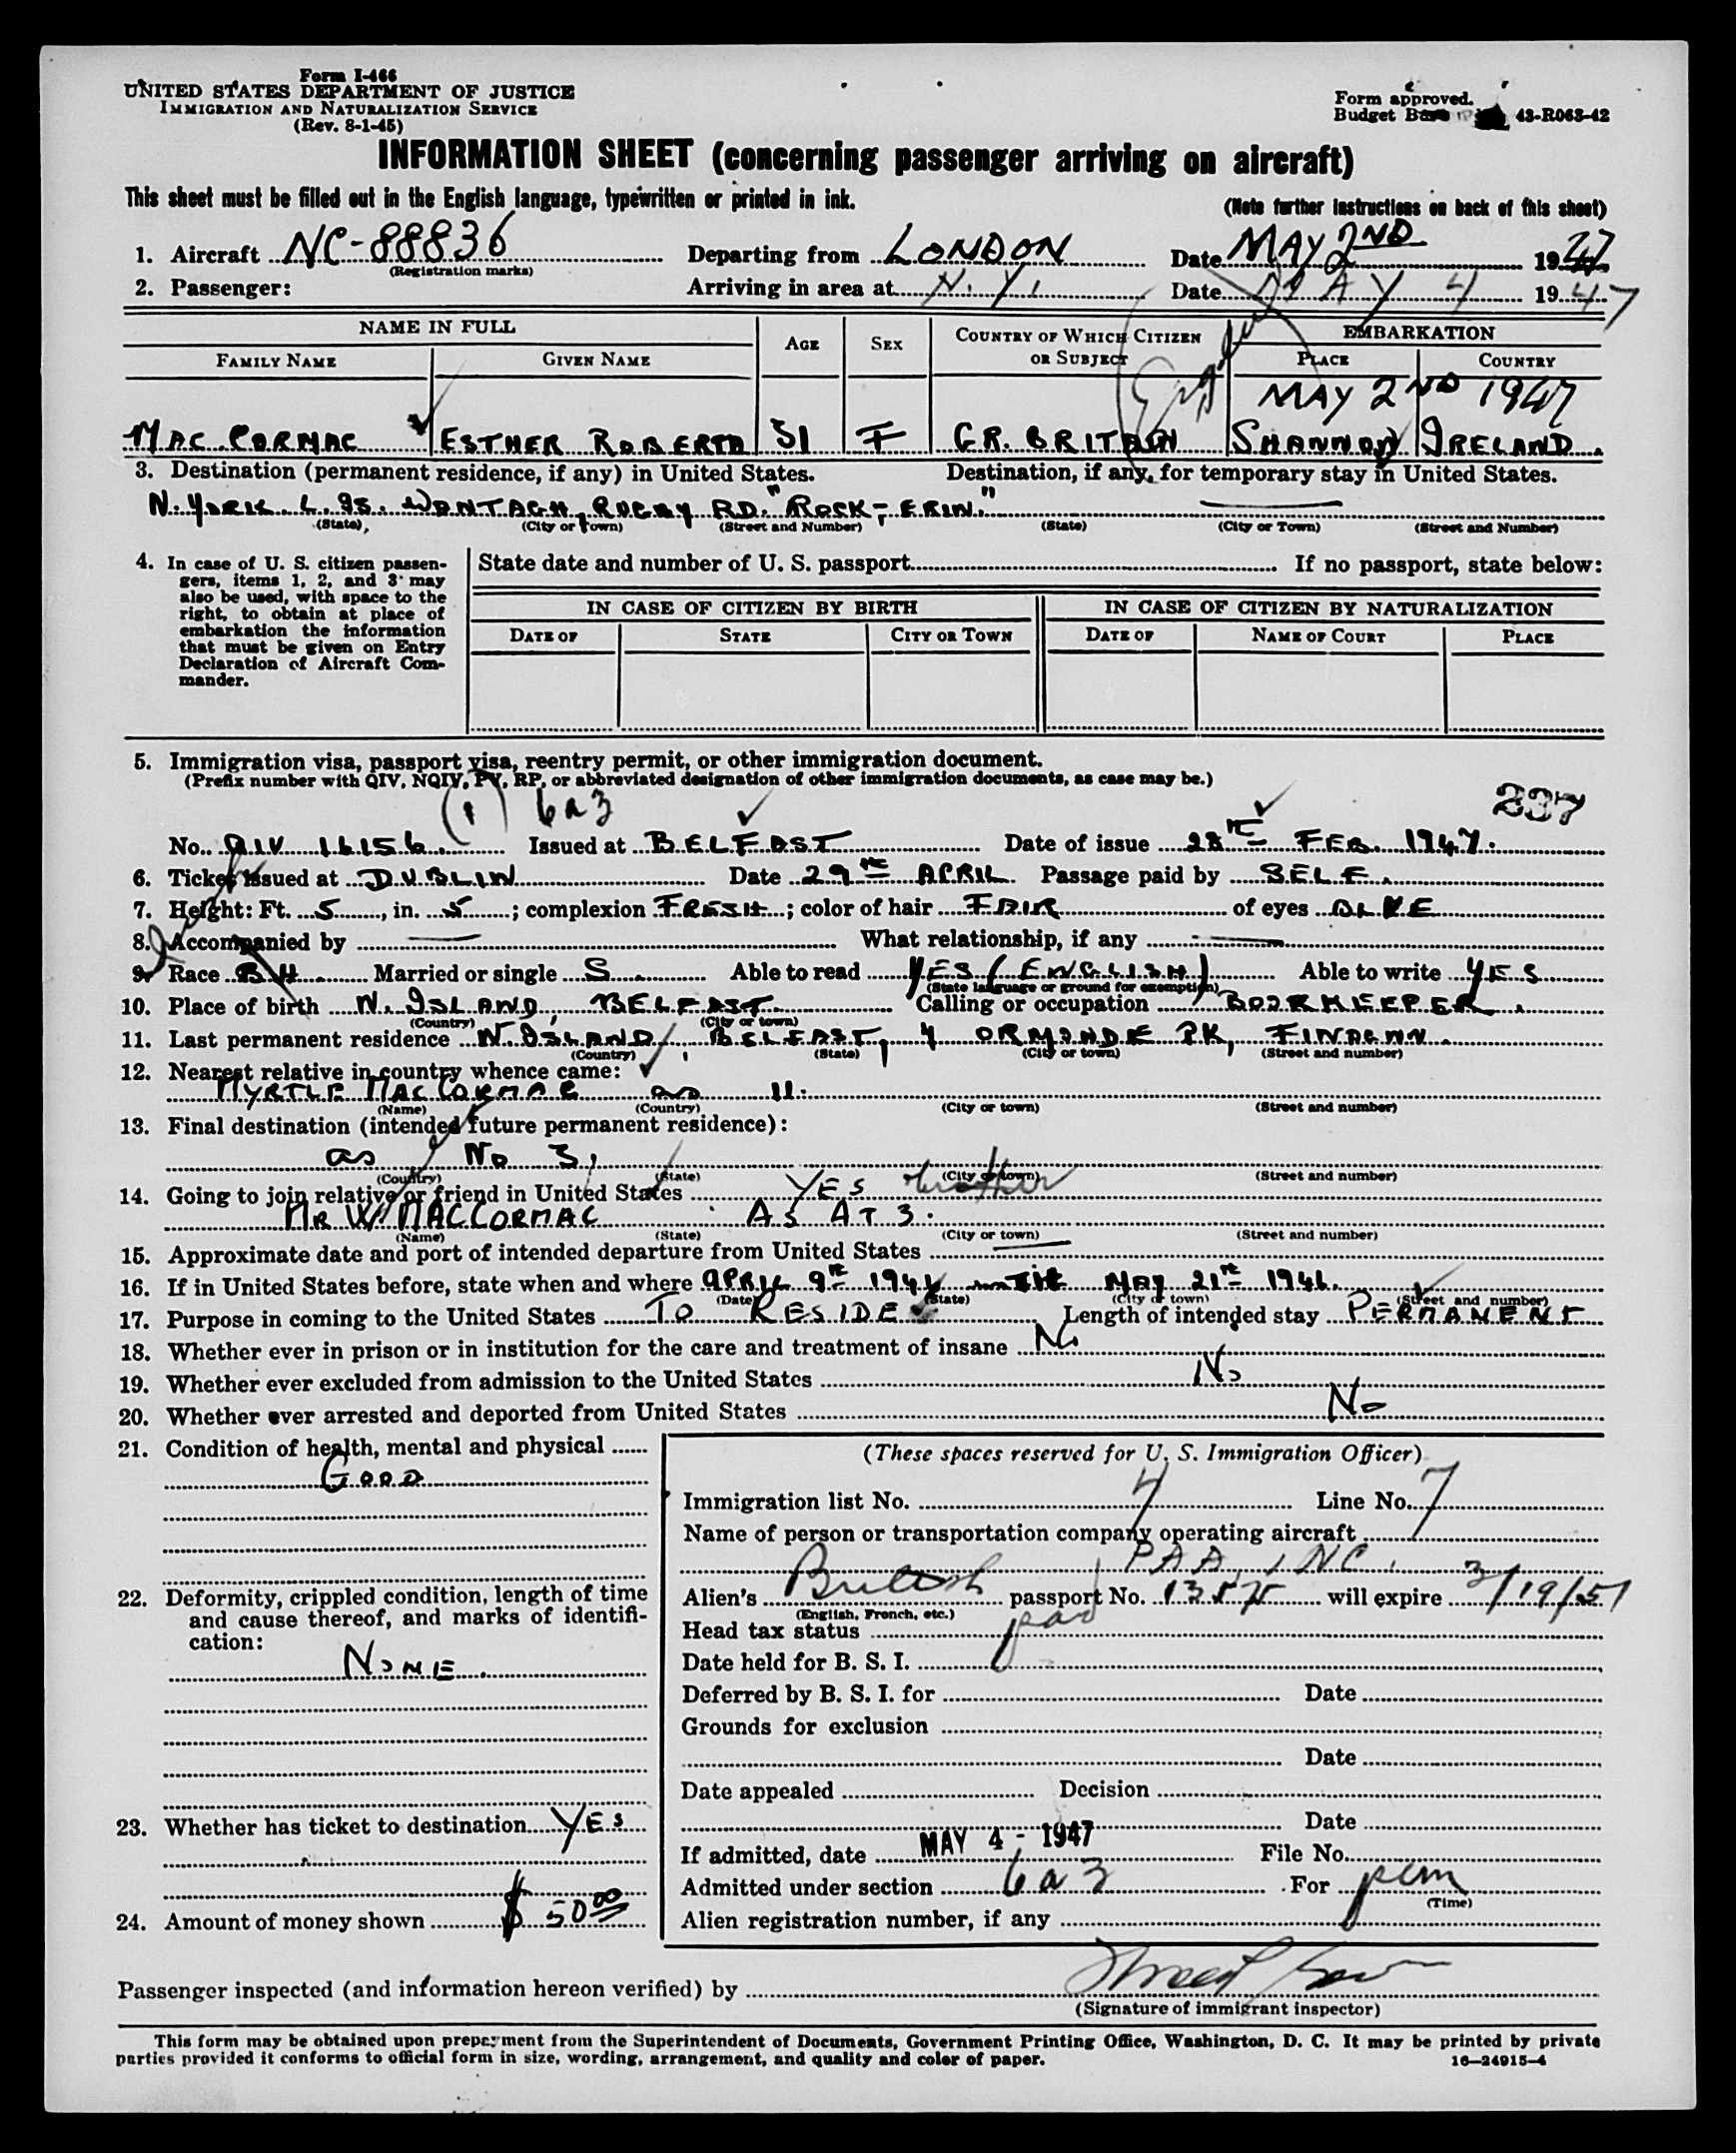 Form I-466
UNITED STATES DEPARTMENT OF JUSTICE
IMMIGRATION AND NATURALIZATION SERVICE
(Rev. 8-1-45)
Form approved.
Budget 43-R063-42
INFORMATION SHEET (concerning passenger arriving on aircraft)
This sheet must be filled out in the English language, typewritten or printed in ink.
(Note further instructions on back of this sheet)
1. Aircraft NC-88836 Departing from LONDON Date MAY 2ND 1947
(Registration marks)
2. Passenger: Arriving in area at N.Y. Date MAY 4 1947
NAME IN FULL AGE SEX COUNTRY OF WHICH CITIZEN OR SUBJECT EMBARKATION
FAMILY NAME GIVEN NAME PLACE COUNTRY
MAY 2ND 1947
MAC CORMAC ESTHER ROBERTA 31 F GR. BRITAIN SHANNON IRELAND.
3. Destination (permanent residence, if any) in United States. Destination, if any, for temporary stay in United States.
N. YORK L. IS. WANTAGH, RUGBY RD. "ROCK-ERIN."
(State), (City or Town) (Street and Number) (State) (City or Town) (Street and Number)
4. In case of U. S. citizen passengers, items 1, 2, and 3 may also be used, with space to the right, to obtain at place of embarkation the information that must be given on Entry Declaration of Aircraft Commander.
State date and number of U. S. passport If no passport, state below:
IN CASE OF CITIZEN BY BIRTH IN CASE OF CITIZEN BY NATURALIZATION
DATE OF STATE CITY OR TOWN DATE OF NAME OF COURT PLACE
5. Immigration visa, passport visa, reentry permit, or other immigration document.
(Prefix number with QIV, NQIV, PV, RP, or abbreviated designation of other immigration documents, as case may be.)
(1) 6a3 237
No. QIV 16156. Issued at BELFAST Date of issue 28TH FEB. 1947.
6. Ticket issued at DUBLIN Date 29TH APRIL Passage paid by SELF.
7. Height: Ft. 5, in. 5; complexion FRESH; color of hair FAIR of eyes BLUE
8. Accompanied by — What relationship, if any —
9. Race Married or single S. Able to read YES (ENGLISH) Able to write YES
(State language or ground for exemption)
10. Place of birth N. IRELAND, BELFAST Calling or occupation BOOKKEEPER.
(Country) (City or town)
11. Last permanent residence N. IRELAND, BELFAST, 4 ORMONDE PK, FINAGHY.
(Country) (State) (City or town) (Street and number)
12. Nearest relative in country whence came:
MYRTLE MAC CORMAC as 11.
(Name) (Country) (City or town) (Street and number)
13. Final destination (intended future permanent residence):
as No 3.
(Country) (State) (City or town) (Street and number)
14. Going to join relative or friend in United States YES brother
MR W. MACCORMAC AS AT 3.
(Name) (State) (City or town) (Street and number)
15. Approximate date and port of intended departure from United States —
16. If in United States before, state when and where APRIL 9TH 1946 MAY 21ST 1946.
(Date) (State) (City or town) (Street and number)
17. Purpose in coming to the United States TO RESIDE Length of intended stay PERMANENT
18. Whether ever in prison or in institution for the care and treatment of insane No
19. Whether ever excluded from admission to the United States No
20. Whether ever arrested and deported from United States No
21. Condition of health, mental and physical
GOOD
22. Deformity, crippled condition, length of time and cause thereof, and marks of identification:
NONE.
23. Whether has ticket to destination YES
24. Amount of money shown $ 50 00
(These spaces reserved for U. S. Immigration Officer)
Immigration list No. 4 Line No. 7
Name of person or transportation company operating aircraft
PAA, INC.
Alien's British passport No. will expire 3/19/51
(English, French, etc.)
Head tax status paid
Date held for B. S. I.
Deferred by B. S. I. for Date
Grounds for exclusion
Date
Date appealed Decision
Date
If admitted, date MAY 4 - 1947 File No.
Admitted under section 6a3 For perm
(Time)
Alien registration number, if any
Passenger inspected (and information hereon verified) by
(Signature of immigrant inspector)
This form may be obtained upon prepayment from the Superintendent of Documents, Government Printing Office, Washington, D. C. It may be printed by private
parties provided it conforms to official form in size, wording, arrangement, and quality and color of paper. 16—24915-4